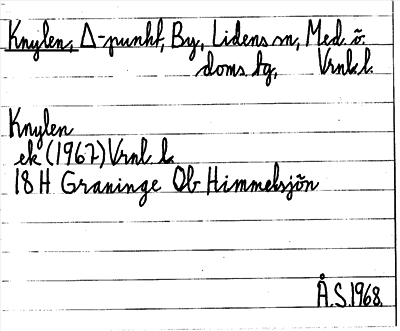 Knylen, Δ-punkt, By, Lidens sn, Med. ö.
doms. tg, Vrnl.l.
Knylen
ek (1967) Vrnl l.
18 H Graninge Ob Himmelsjön
Å.S.1968.